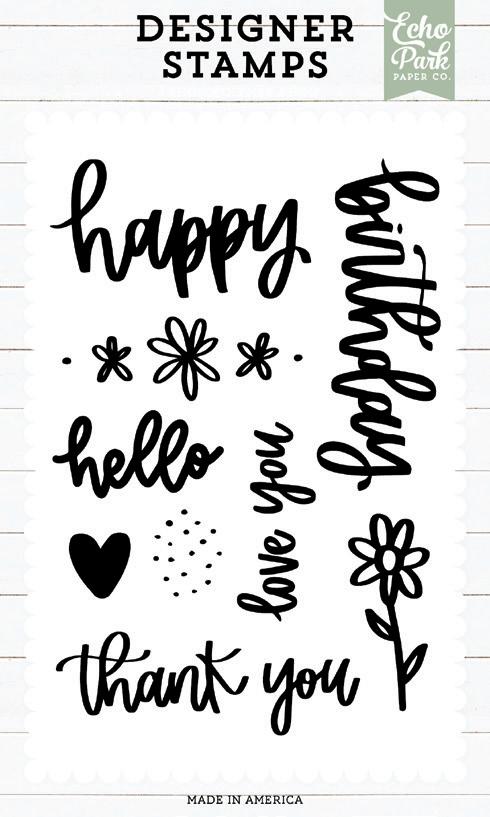 DESIGNER
STAMPS
Echo
Park
PAPER CO.
happy
birthday
hello
love you
thank you
MADE IN AMERICA